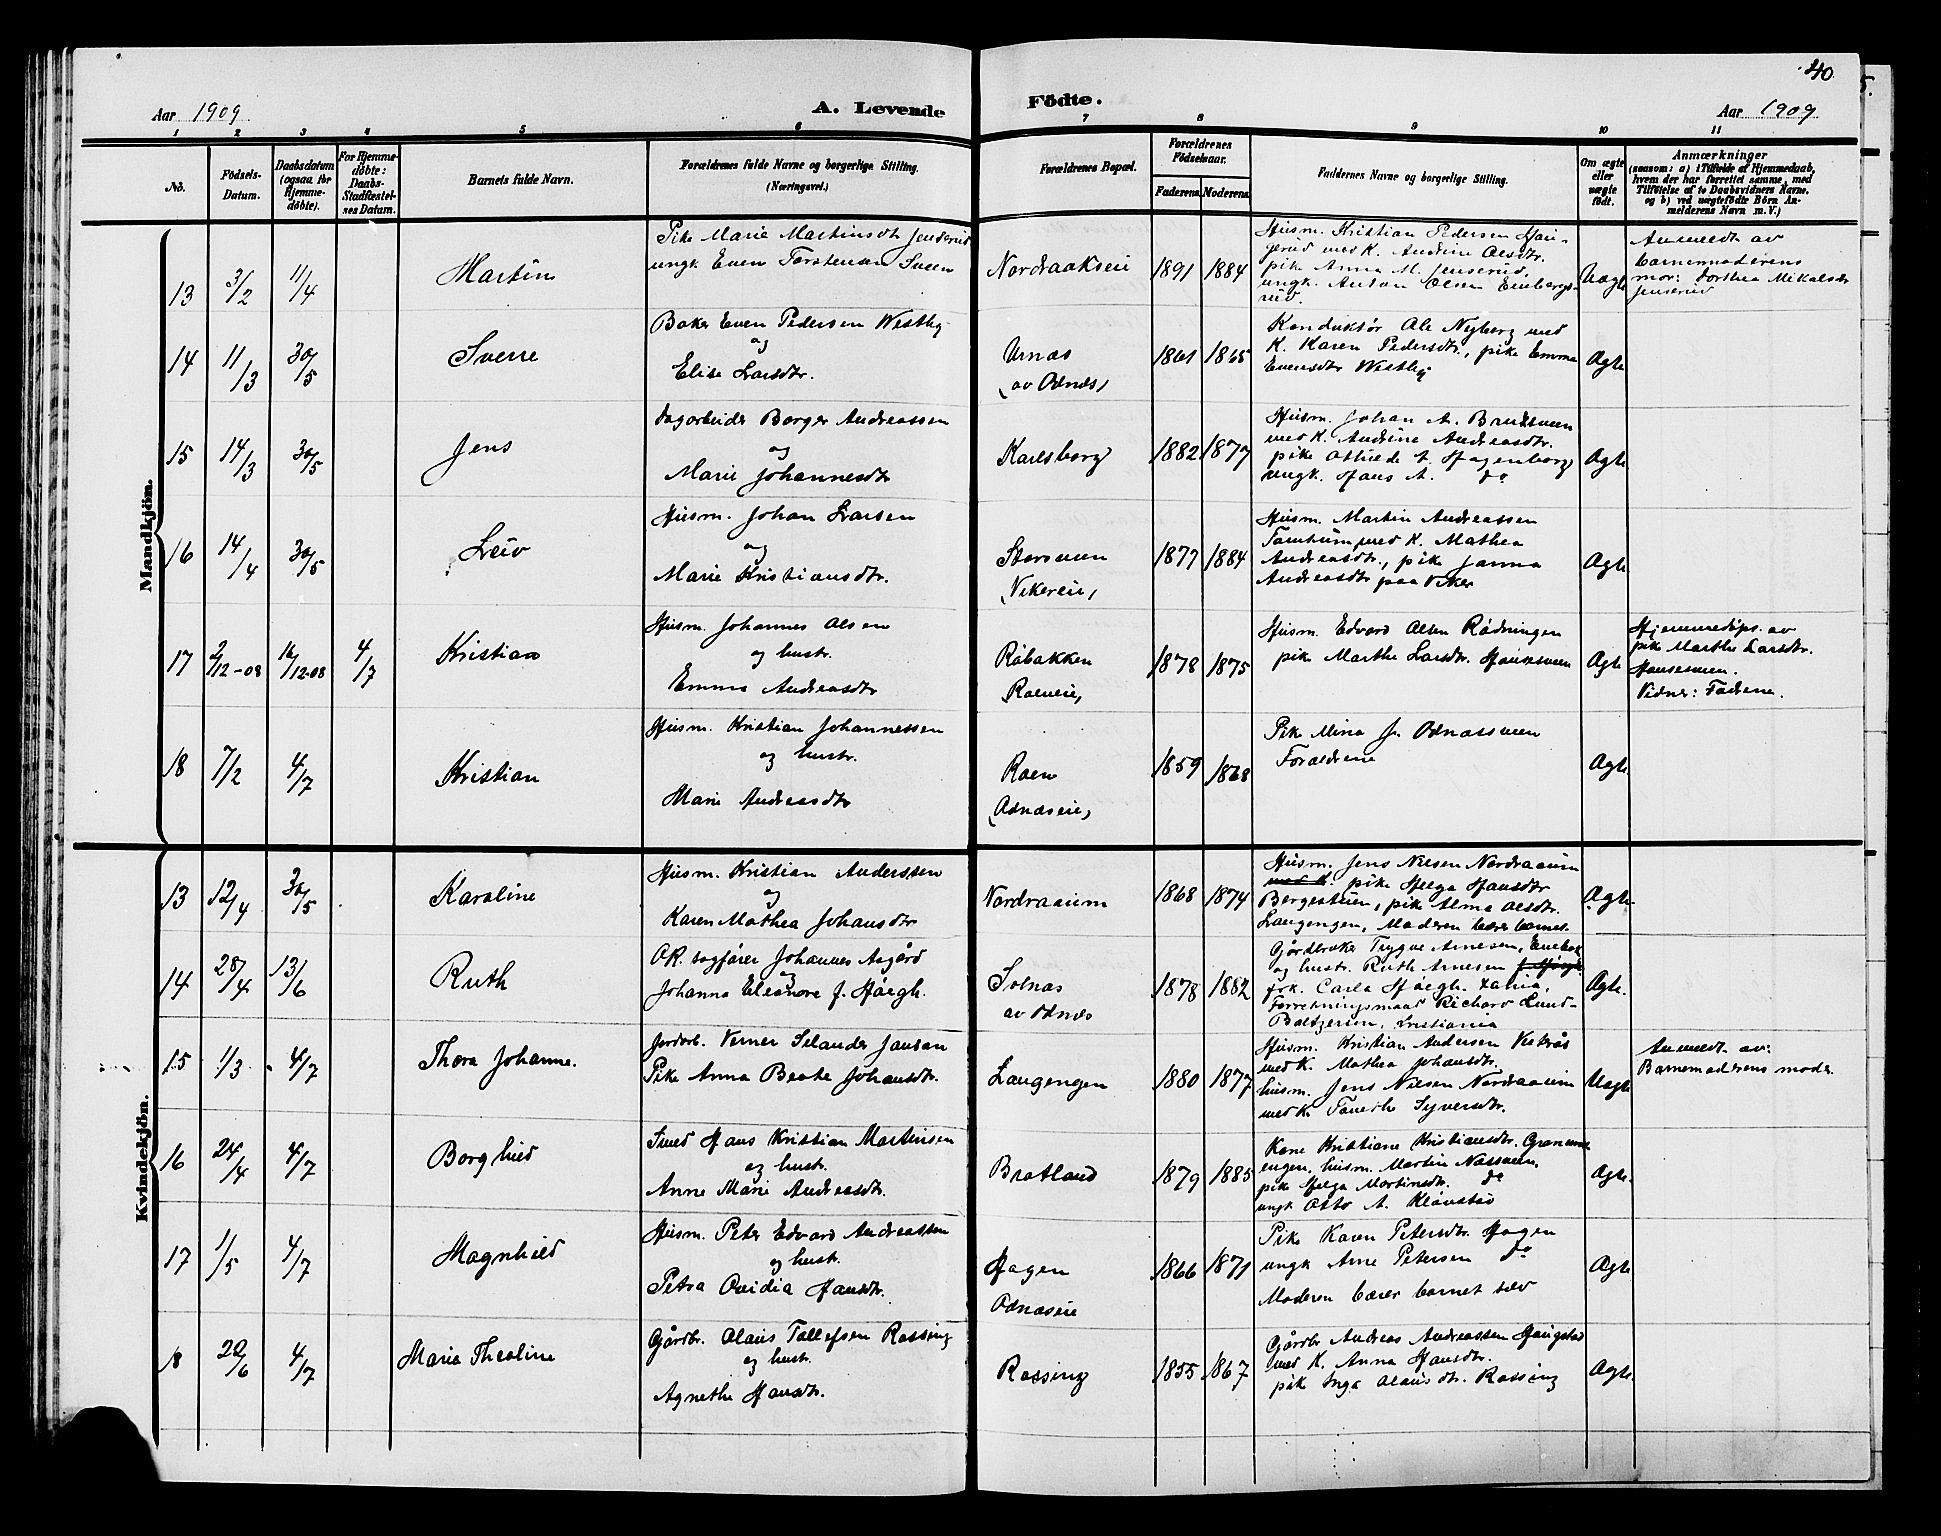 40
Aar 1909. A. Levende Födte. Aar 1909
1 2 3 4 5 6 7 8 9 10 11
No. Födsels-Datum. Daabsdatum (ogsaa for Hjemme-döbte). For Hjemme-döbte: Daabs-Stadfæstel-ses Datum. Barnets fulde Navn. Forældrenes fulde Navne og borgerlige Stilling. (Næringsvei.) Forældrenes Bopæl. Forældrenes Födselsaar. Faderens Moderens Faddernes Navne og borgerlige Stilling. Om ægte eller uægte födt.
Anmærkninger
(saasom: a) i Tilfælde af Hjemmedaab,
hvem der har forrettet samme, med
Tilföielse af to Daabsvidners Navne,
og b) ved uægtefödte Börn An-
melderens Navn m.V.)
Mandkjön.
13 3/2 11/4 Martin
Pike Marie Martinsdt Jenserud
ungk Even Torstensen Sveen
Nordraakseie 1891 1884
Husm. Kristian Pedersen Hau-
gerud med K. Andrine Olsdtr.
pik Anna M. Jenserud,
ungk. Anton Olsen Enebergs-
rud.
Uægte
Anmeldt av
barnemoderens
mor: Dorthea Mikalsdtr
Jenserud
14 11/3 30/5 Sverre
Baker Even Pedersen Westby
og
Elise Larsdtr.
Urnæs
(av Odnæs)
1861 1865
Konduktør Ole Nyberg med
K. Karen Pedersdtr., pike Emma
Evensdtr Westby
Ægte
15 14/3 30/5 Jens
Dagarbeider Borger Andreassen
og
Marie Johannesdtr
Karlsborg 1882 1877
Husm. Johan A. Brudesveen
med K. Andrine Andreasdtr.
pike Othilde A. Hagenborg
ungk. Hans A. do
Ægte
16 14/4 30/5 Leiv
Husm. Johan Larsen
og
Marie Kristiansdtr.
Storsveen
(Vikereie)
1877 1884
Husm. Martin Andreassen
Tomtum med K. Mathea
Andreasdtr., pik Janna
Andreasdtr paa Viker
Ægte
17 2/12-08 16/12-08 4/7 Kristian
Husm. Johannes Olsen
og hustr.
Emma Andreasdtr
Røbakken
Roeneie,
1878 1875
Husm. Edvard Olsen Rødningen
pik Marthe Larsdtr. Hansesveen
Ægte
Hjemmedøps. av
pik Marthe Larsdtr.
Hansesveen.
Vidner: Fadrene.
18 7/2 4/7 Kristian
Husm. Kristian Johannessen
og hustr.
Marie Andreasdtr
Roen
(Odnæseie)
1859 1868
Pik Mina J. Odnæssveen
Forældrene
Ægte.
Kvindekjön.
13 12/4 30/5 Karoline
Husm. Kristian Anderssen
og
Karen Mathea Johansdtr
Nordraaum 1868 1874
Husm. Jens Nilsen Nordraaum
med K. pike Helga Hansdtr
Bergestuen, pik Alma Olsdtr.
Laugengen, Moderen bærer barnet.
Ægte.
14 28/4 13/6 Ruth
OR. sagfører Johannes Aagård
og
Johanna Eleonore f. Høegh.
Solnæs
av Odnæs
1878 1882
Gårdbruker Trygve Arnesen, Enebak
og hustr. Ruth Arnesen f. Høegh
frk. Carla Høegh.
Forretningsmand Richard Lund-
Baltzersen, Kristiania
Ægte.
15 1/3 4/7 Thora Johanne.
Jordarb. Verner Selander Jansan
Pike Anna Beate Johansdtr.
Laugengen 1880 1877
Husm. Kristian Andersen
med K. Mathea Johansdtr.
husm. Jens Nilsen Nordraaum
med K. Syversdtr.
Uægte
Anmeldt av:
Barnemoderens moder.
16 24/4 4/7 Borghild
Smed Hans Kristian Martinsen
og hustr.
Anne Marie Andreasdtr.
Bratland 1879 1885
Kone Kristiane Kristiansdtr. Granum-
engen, husm. Martin Næssveen,
pik Helga Martinsdtr. do
ungk Otto A. Kløvstad
Ægte.
17 1/5 4/7 Magnhild
Husm. Peter Edvard Andreassen
og hustr.
Petra Ovidia Hansdtr.
Hagen
Odnæseie
1866 1871
Pike Karen Petersdtr. Hagen
ungk Arne Petersen do
Moderen bærer barnet selv
Ægte
18 20/6 4/7 Maria Theoline
Gårdbr. Olaus Tollefsen Røssing
og hustr.
Agnethe Hansdtr.
Røssing 1855 1867
Gårdbr Andreas Andreassen Haugstad
med K. Anna Hansdtr.
pik Inga Olausdtr. Røssing
Ægte.